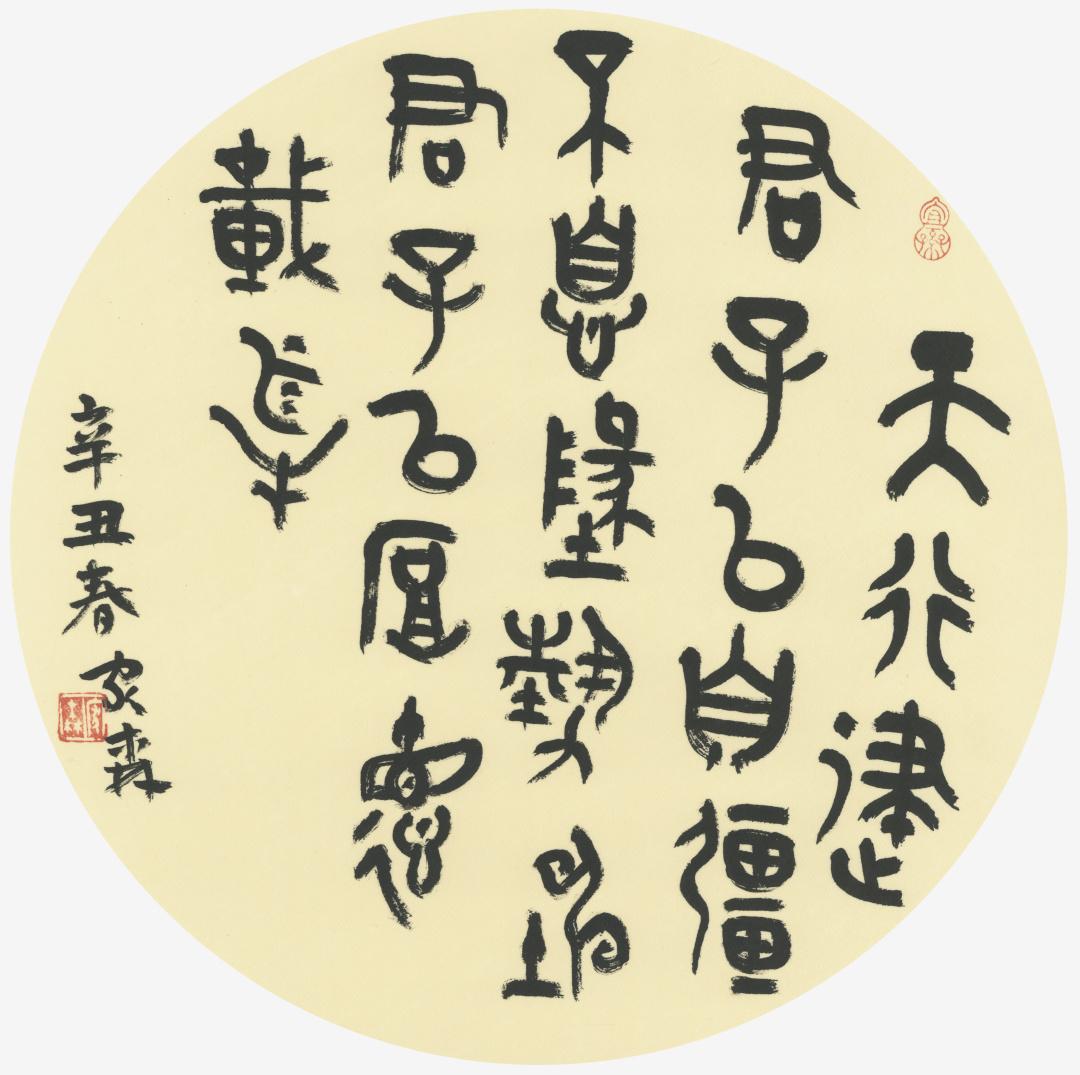 天行健
君子以自彊
不息墬勢坤
君子以厚德
載物
辛丑春家森